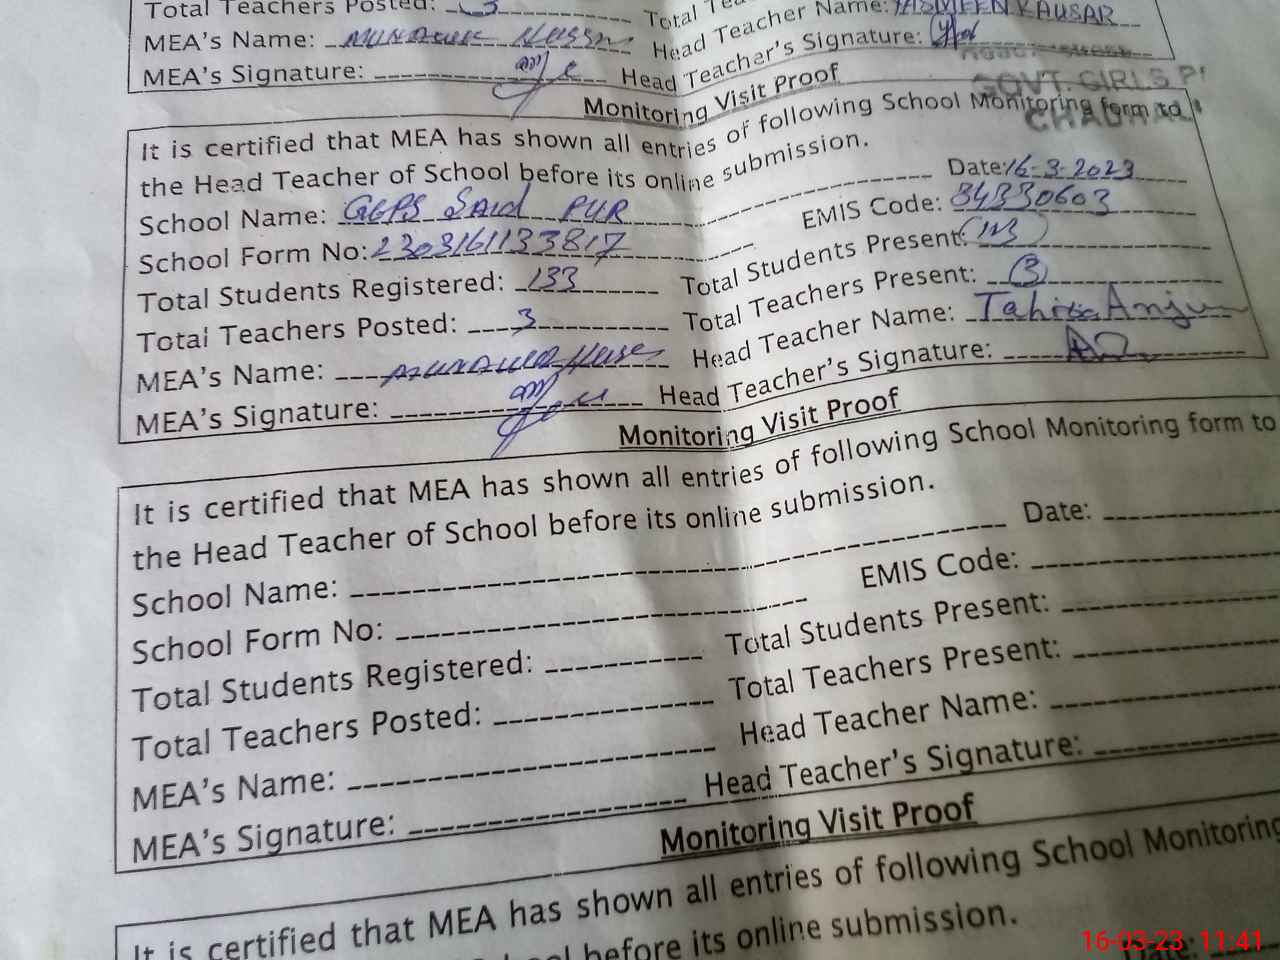 Total Teachers Posted: 3 Total Head Teacher Name: YASMEEN KAUSAR
MEA's Name: MUNAWER Head Teacher's Signature:
MEA's Signature:
GOVT. GIRLS
Monitoring Visit Proof
It is certified that MEA has shown all entries of following School Monitoring form to
the Head Teacher of School before its online submission.
School Name: GGPS SAID PUR Date: 16-3-2023
School Form No: 2303161133817 EMIS Code: 34330603
Total Students Registered: 133 Total Students Present: 113
Total Teachers Posted: 3 Total Teachers Present: 3
MEA's Name: MUNAWER Head Teacher Name: Tahira Anjum
MEA's Signature: Head Teacher's Signature:
Monitoring Visit Proof
It is certified that MEA has shown all entries of following School Monitoring form to
the Head Teacher of School before its online submission.
School Name: Date:
School Form No: EMIS Code:
Total Students Registered: Total Students Present:
Total Teachers Posted: Total Teachers Present:
MEA's Name: Head Teacher Name:
MEA's Signature: Head Teacher's Signature:
Monitoring Visit Proof
It is certified that MEA has shown all entries of following School Monitoring
before its online submission.
Date:
16-03-23 11:41